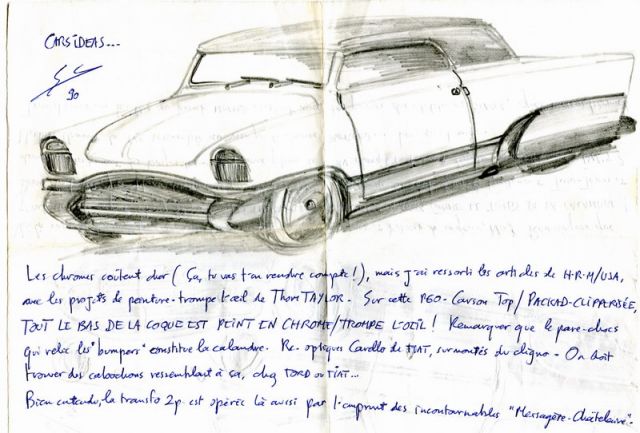 CARS IDEAS...
90
Les chromes coûtent cher (Ça, tu vas t'en rendre compte!), mais j'ai ressorti les articles de H-R-M/USA,
avec les projets de peinture-trompe l'oeil de Thom TAYLOR. Sur cette P60-Carson Top/PACKARD-CLIPPERISÉE,
TOUT LE BAS DE LA COQUE EST PEINT EN CHROME/TROMPE L'OEIL! Remarquer que le pare-chocs
qui relie les "bumpers" constitue la calandre. Re-optiques Carello de FIAT, surmontés du cligno- On doit
trouver des cabochons ressemblant à ça, chez FORD ou FIAT...
Bien entendu, la transfo 2p est opérée là aussi par l'emprunt des incontournables "Messagère-Châtelaine".